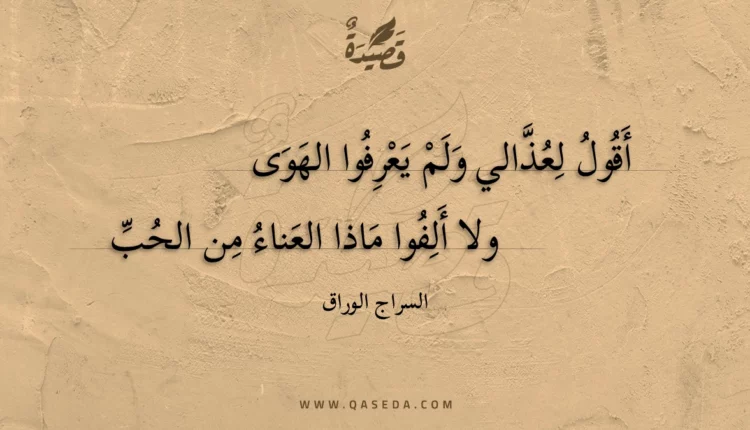 قَصِيدَةٌ
أَقُولُ لِعُذَّالي وَلَمْ يَعْرِفُوا الهَوَى
ولا أَلِفُوا مَاذا العَناءُ مِن الحُبِّ
السراج الوراق
WWW.QASEDA.COM